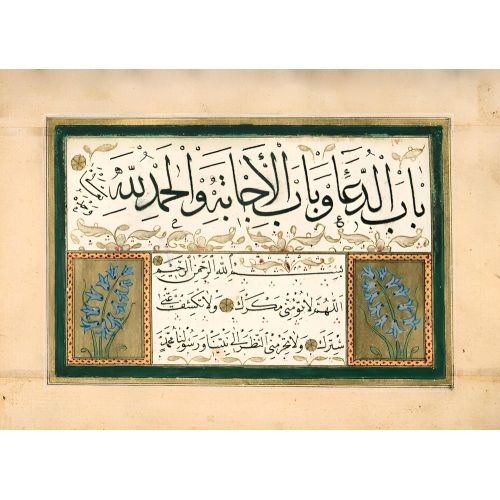 باب الدعا وباب الاجابة والحمد لله
بسم الله الرحمن الرحيم
اللهم لا تؤمني مكرك ولا تكشف عني
سترك ولا تحرمني النظر الى بيتك ورسولنا محمد